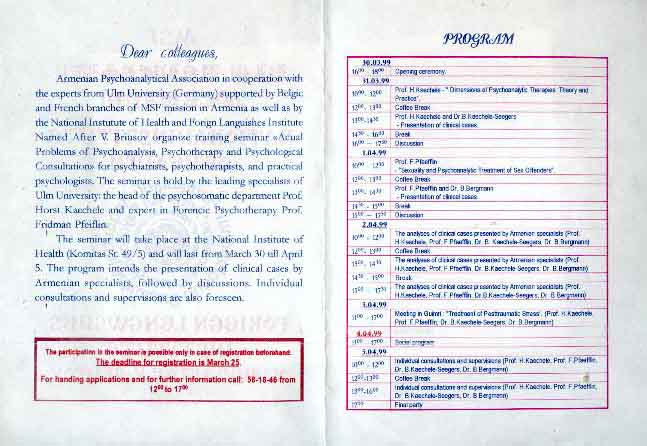 Dear colleagues,
Armenian Psychoanalytical Association in cooperation with
the experts from Ulm University (Germany) supported by Belgic
and French branches of MSF mission in Armenia as well as by
the National Instutute of Health and Forign Languishes Institute
Named After V. Briusov organize training seminar «Actual
Problems of Psychoanalysis, Psychotherapy and Psychological
Consultation» for psychiatrists, psychotherapists, and practical
psychologists. The seminar is hold by the leading specialists of
Ulm University: the head of the psychosomatic department Prof.
Horst Kaechele and expert in Forencic Psychotherapy Prof.
Fridman Pfeiflin.
The seminar will take place at the National Institute of
Health (Komitas St. 49/5) and will last from March 30 till April
5. The program intends the presentation of clinical cases by
Armenian specialists, followed by discussions. Individual
consultations and supervisions are also foreseen.
The participation in the seminar is possible only in case of registration beforehand.
The deadline for registration is March 25.
For handing applications and for further information call: 58-18-46 from
12⁰⁰ to 17⁰⁰
PROGRAM
30.03.99
16⁰⁰ - 18⁰⁰ Opening ceremony.
31.03.99
10⁰⁰ - 12⁰⁰ Prof. H.Kaechele - " Dimensions of Psychoanalytic Therapies: Theory and
Practice".
12⁰⁰- 13⁰⁰ Coffee Break
13⁰⁰-14³⁰ Prof. H.Kaechele and Dr.B.Kaechele-Seegers
- Presentation of clinical cases.
14³⁰ - 16⁰⁰ Break
16⁰⁰ - 17³⁰ Discussion
1.04.99
10⁰⁰ - 12⁰⁰ Prof. F.Pfaefflin
- "Sexuality and Psychoanalytic Treatment of Sex Offenders".
12⁰⁰- 13⁰⁰ Coffee Break
13⁰⁰- 14³⁰ Prof. F.Pfaefflin and Dr. B.Bergmann
- Presentation of clinical cases.
14³⁰ - 15⁰⁰ Break
15⁰⁰ - 17³⁰ Discussion
2.04.99
10⁰⁰ - 12⁰⁰ The analyses of clinical cases presented by Armenian specialists (Prof.
H.Kaechele, Prof. F.Pfaefflin, Dr. B. Kaechele-Seegers, Dr. B.Bergmann)
12⁰⁰- 13⁰⁰ Coffee Break
13⁰⁰- 14³⁰ The analyses of clinical cases presented by Armenian specialists (Prof.
H.Kaechele, Prof. F.Pfaefflin, Dr.B.Kaechele-Seegers, Dr. B.Bergmann)
14³⁰ - 15⁰⁰ Break
15⁰⁰ - 17³⁰ The analyses of clinical cases presented by Armenian specialists (Prof.
H.Kaechele, Prof. F.Pfaefflin, Dr.B.Kaechele-Seegers, Dr. B.Bergmann)
3.04.99
11⁰⁰ - 17⁰⁰ Meeting in Guimri : "Treatment of Posttraumatic Stress". (Prof. H.Kaechele,
Prof. F.Pfaefflin, Dr. B.Kaechele-Seegers, Dr. B.Bergmann)
4.04.99
11⁰⁰ - 17⁰⁰ Social program
5.04.99
10⁰⁰ - 12⁰⁰ Individual consultations and supervisions (Prof. H.Kaechele, Prof. F.Pfaefflin,
Dr. B.Kaechele-Seegers, Dr. B.Bergmann)
12⁰⁰-13⁰⁰ Coffee Break
13⁰⁰-16⁰⁰ Individual consultations and supervisions (Prof. H.Kaechele, Prof. F.Pfaefflin,
Dr. B.Kaechele-Seegers, Dr. B.Bergmann)
17⁰⁰ Final party